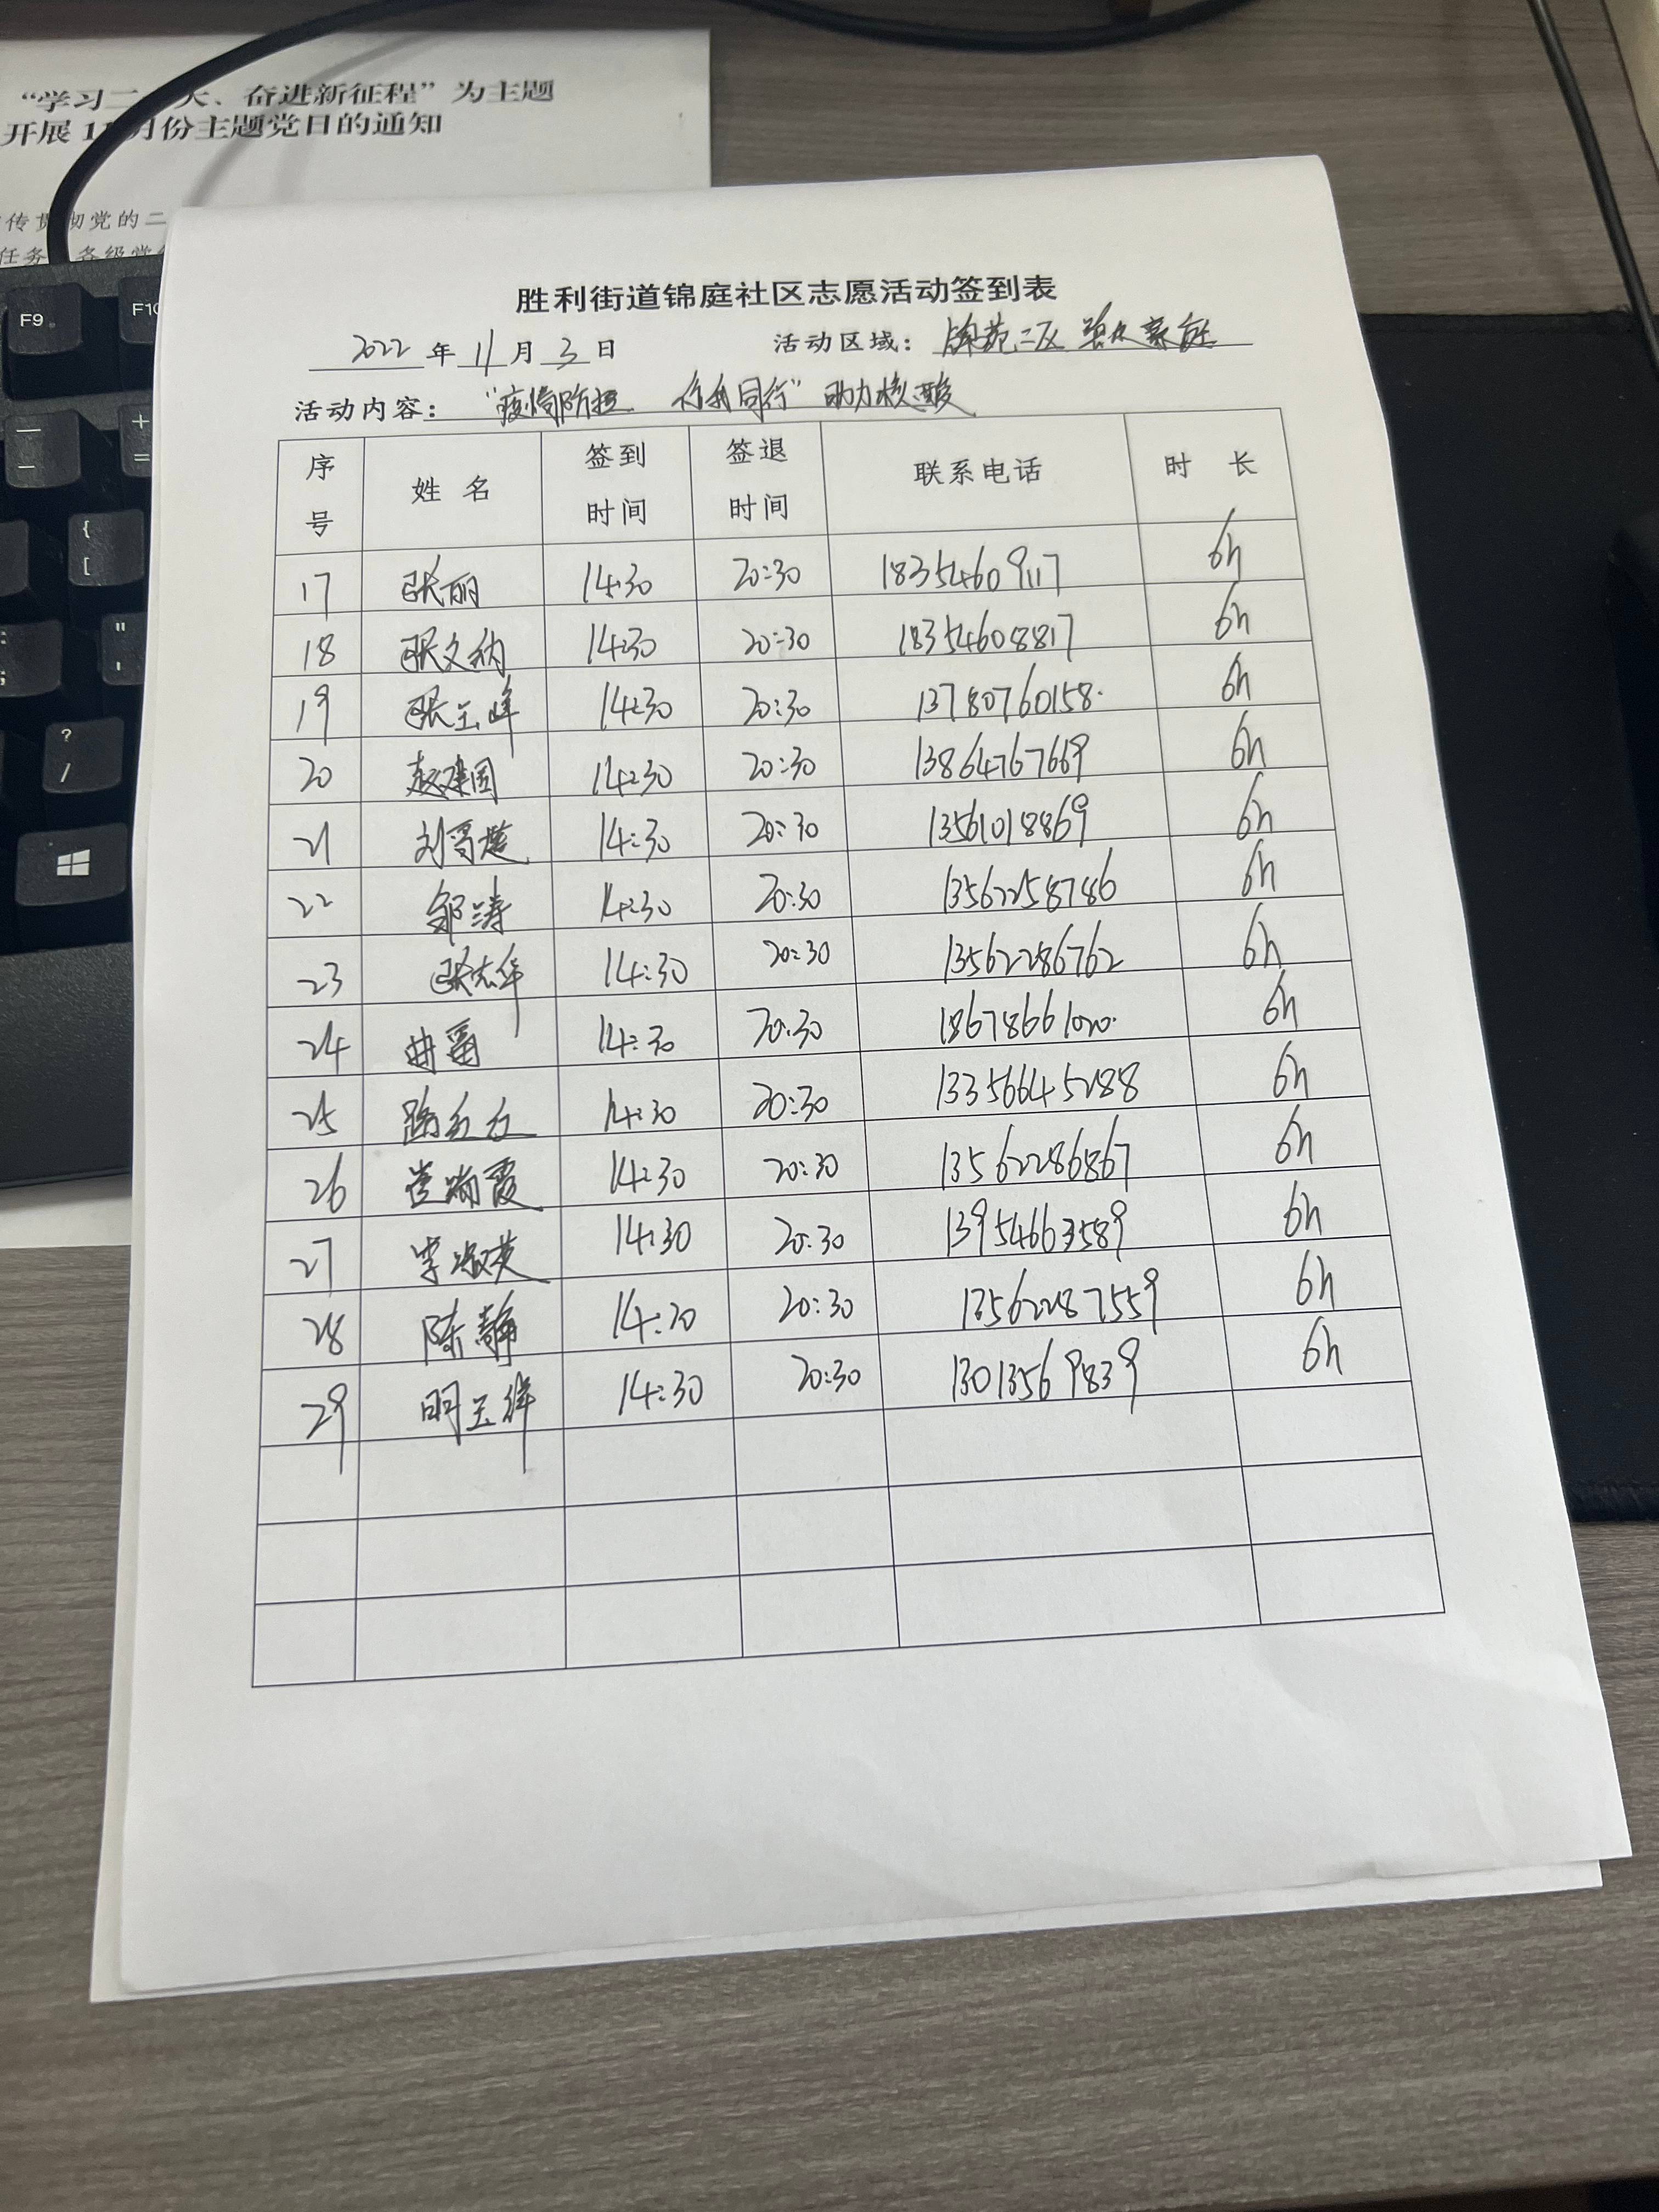 “学习二 大、奋进新征程”为主题
开展 1 月份主题党日的通知
传贯彻党的二
任务 各级党
F9
F10
胜利街道锦庭社区志愿活动签到表
2022 年 11 月 3 日 活动区域： 锦苑二区
活动内容： “疫情防控 你我同行” 助力核酸
序号 姓名 签到时间 签退时间 联系电话 时长
17 张丽 14:30 20:30 18354609117 6h
18 张文纳 14:30 20:30 18354608817 6h
19 张玉峰 14:30 20:30 13780760158 6h
20 赵建国 14:30 20:30 13864767669 6h
21 刘 14:30 20:30 13561018869 6h
22 邹涛 14:30 20:30 13562258786 6h
23 张志华 14:30 20:30 13562286762 6h
24 曲 14:30 20:30 18678661020 6h
25 路 14:30 20:30 13356645288 6h
26 霞 14:30 20:30 13562286867 6h
27 李淑英 14:30 20:30 13954663589 6h
28 陈静 14:30 20:30 13562287559 6h
29 明玉祥 14:30 20:30 13013569839 6h